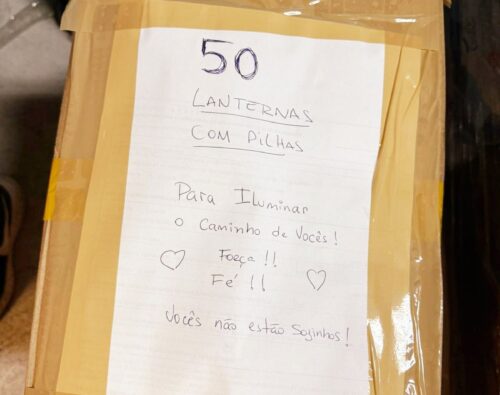 50
LANTERNAS
COM PILHAS
Para Iluminar
o Caminho de Vocês!
Força!!
Fé!!
Vocês não estão Sozinhos!